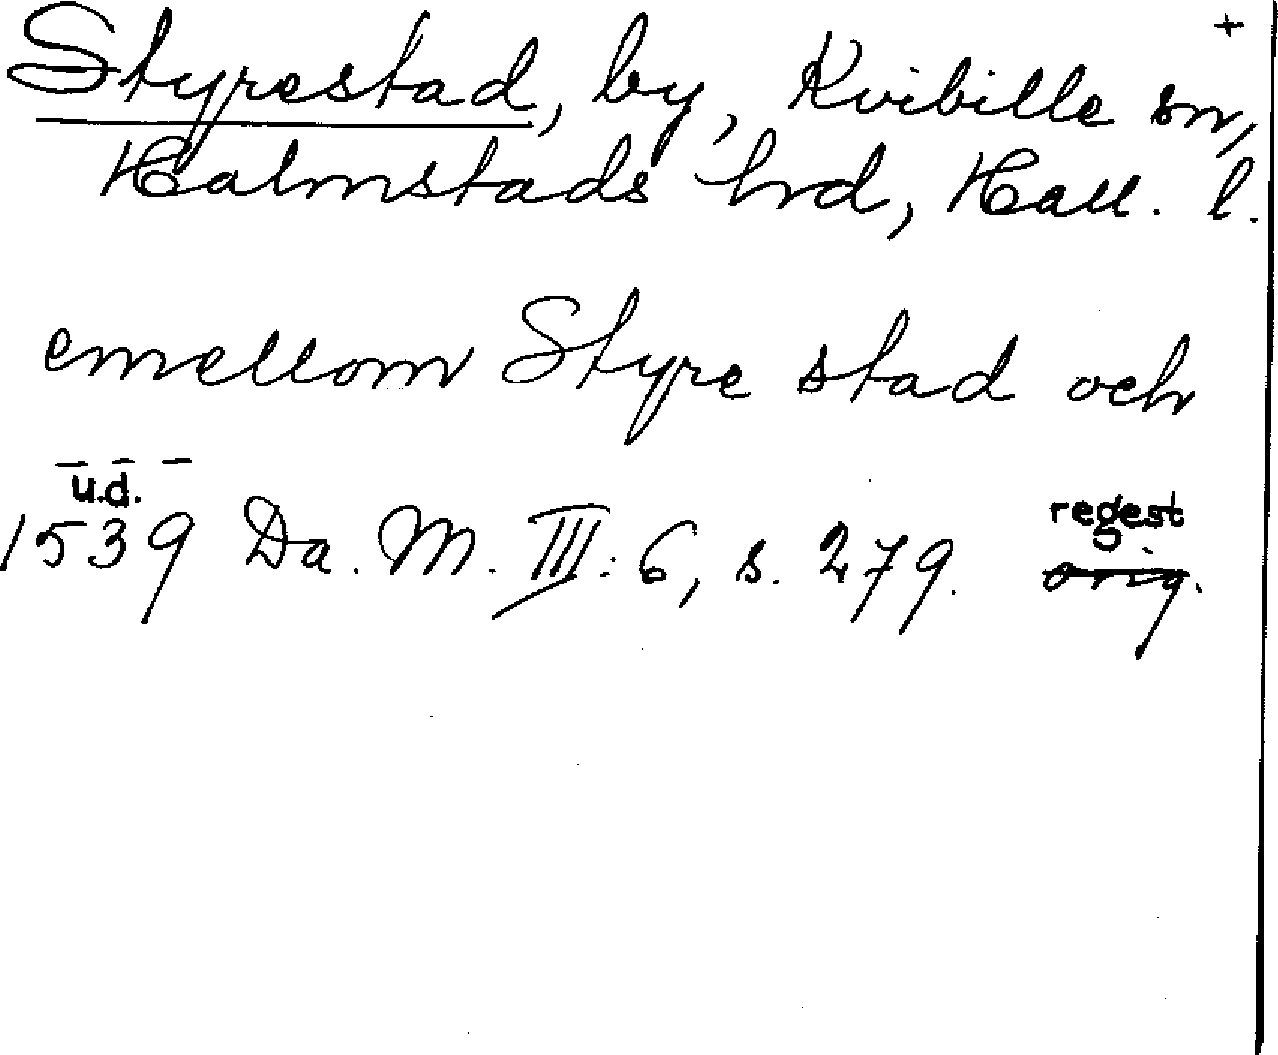 +
Styrestad, by, Kvibille sn,
Halmstads hrd, Hall. l.
emellom Styre stad och
– – –
u.d.
1539 Da. M. III: 6, s. 279. regest
orig.